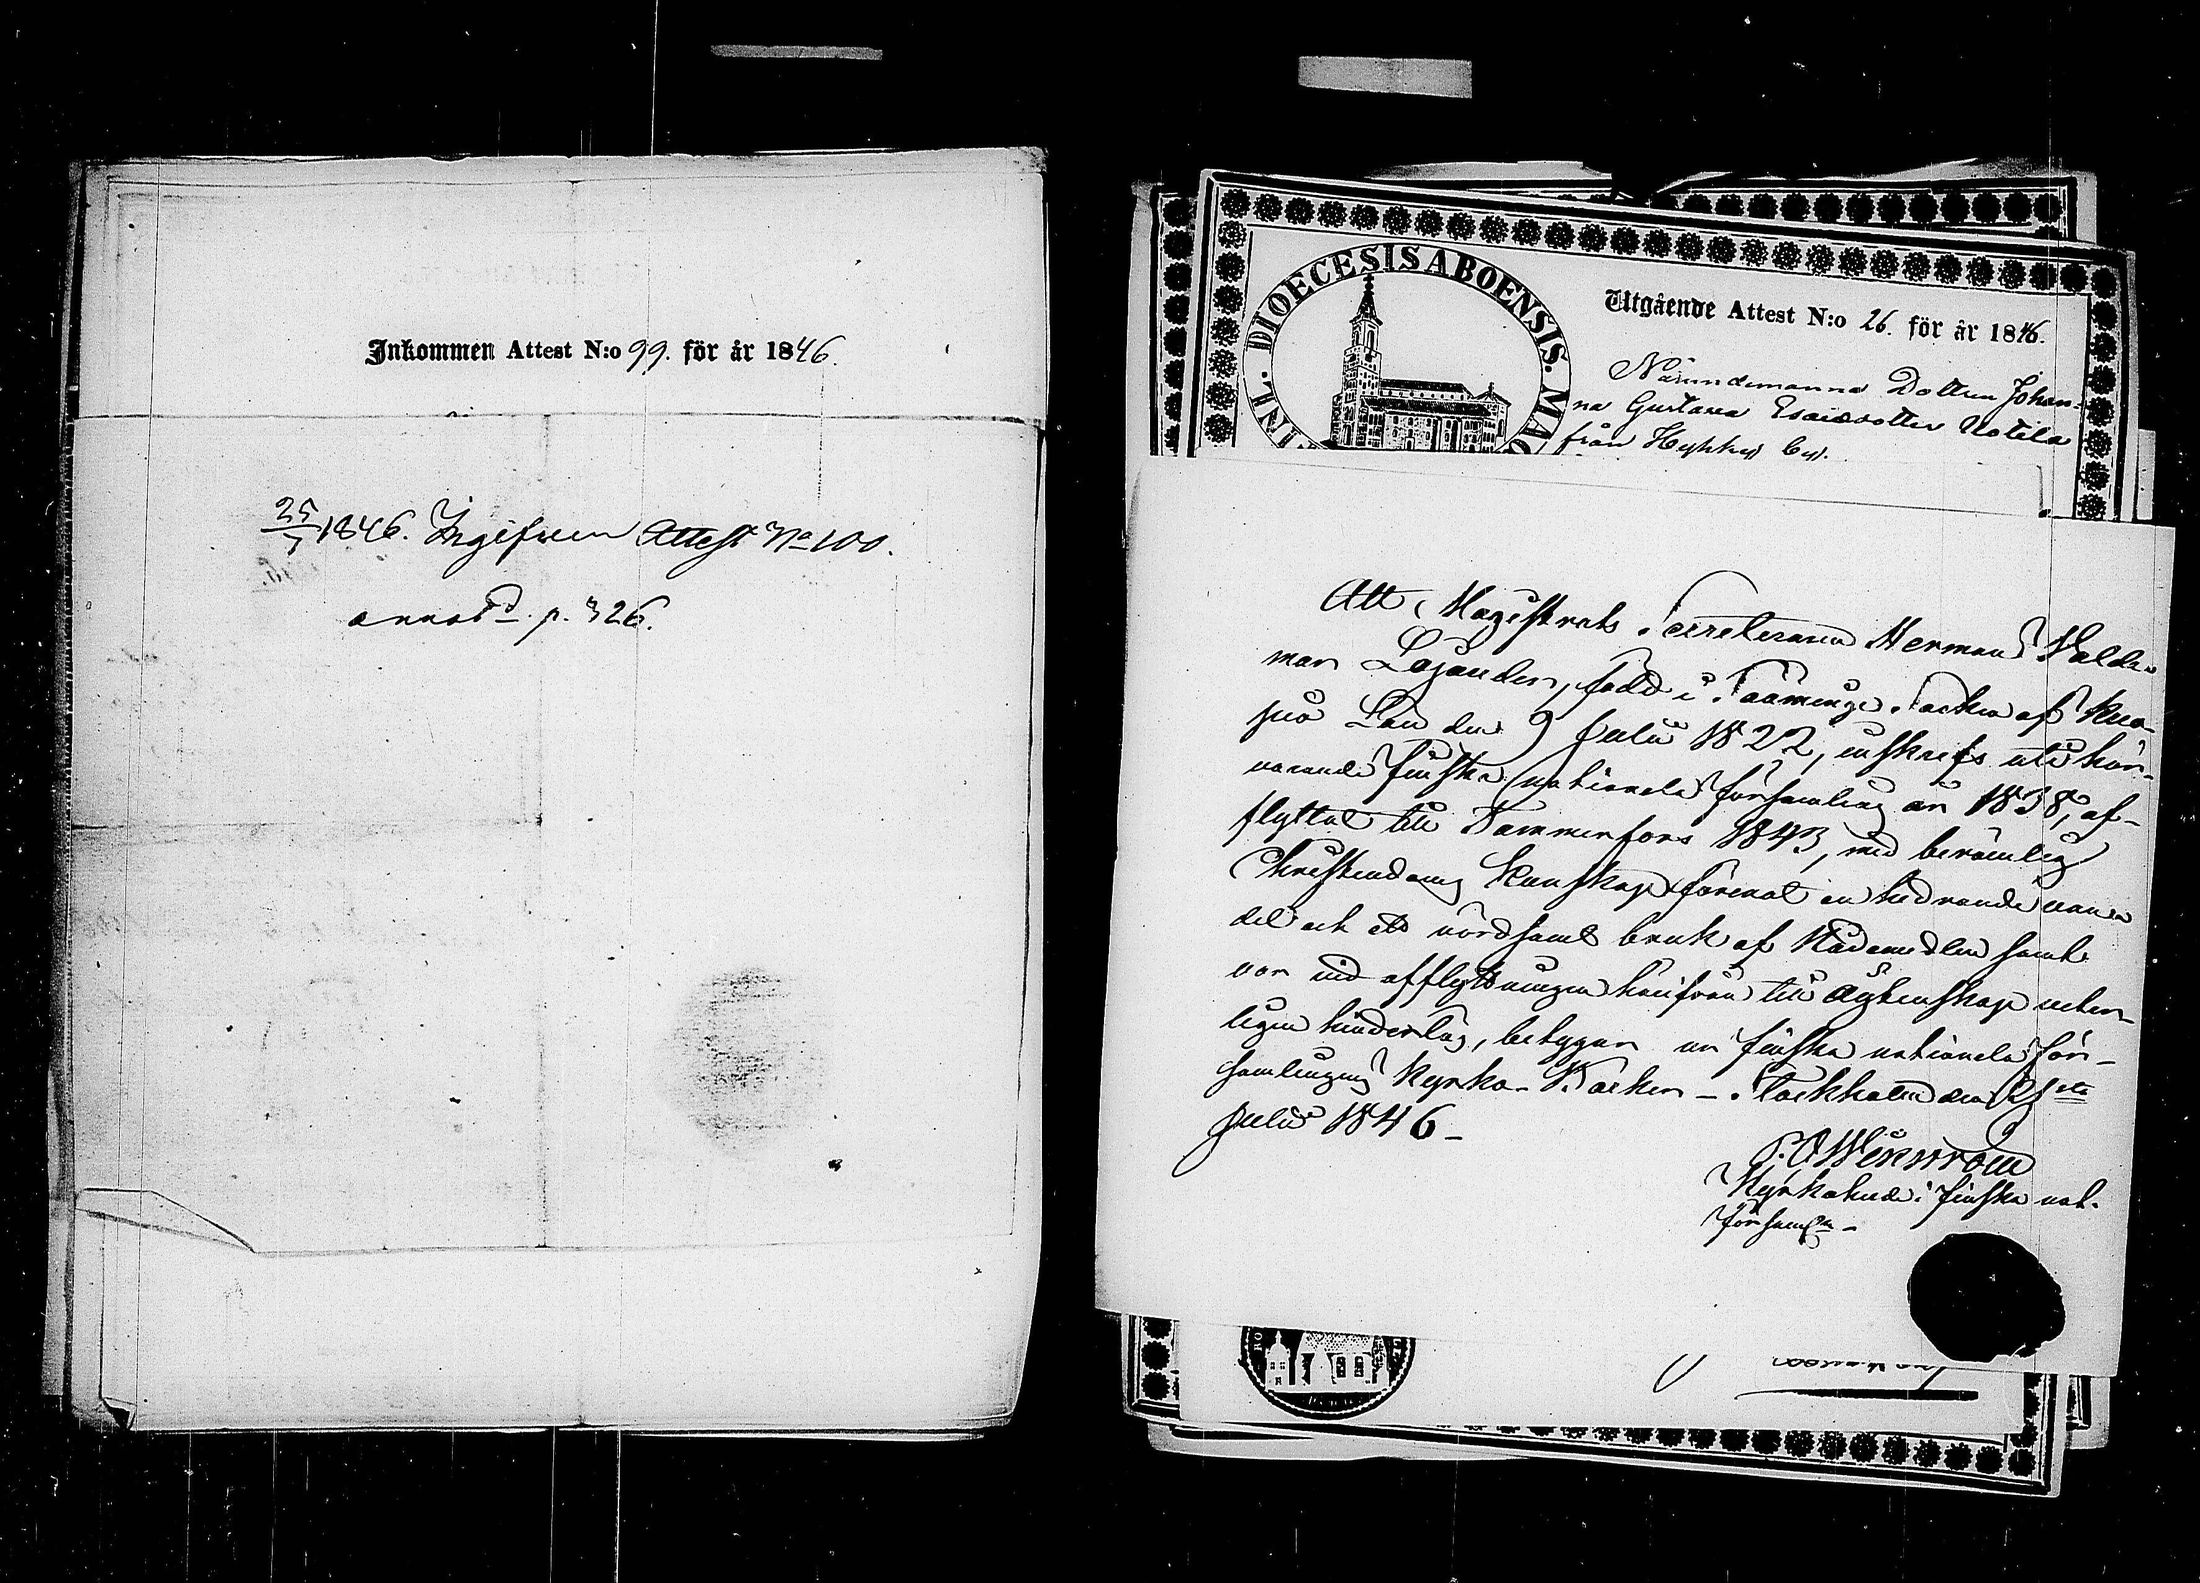 Inkommen Attest N:o 99. för år 1846.
25/7 1846. Ingifven Attest No 100.
annotd. p. 326.
INL. DIOECESIS ABOENSIS. MAG
Utgående Attest N:o 26. för år 1846.
Nämndemanna Dottren Johan-
na Gustava Esaiædotter Uotila
från Hykkyr by.
Att Magistrats Secreteraren Herman Walde-
mar Lojander, född i Sääminge Socken af Kuo-
pio Län den 9 Julii 1822, inskrefs uti här-
varande finska nationela församling år 1838, af-
flyttat till Tammerfors 1843, med berömlig
Christendoms Kunskap förenat en hedrande van-
del och ett vördsamt bruk af Nådemedlen samt
var vid afflyttningen härifrån till äktenskap veter-
ligen hinderlös, betygar ur finska nationela för-
samlingens Kyrko-Böcker - Stockholm den 21ste
Julii 1846 -
Kyrkoherde i finska nat.
församln -